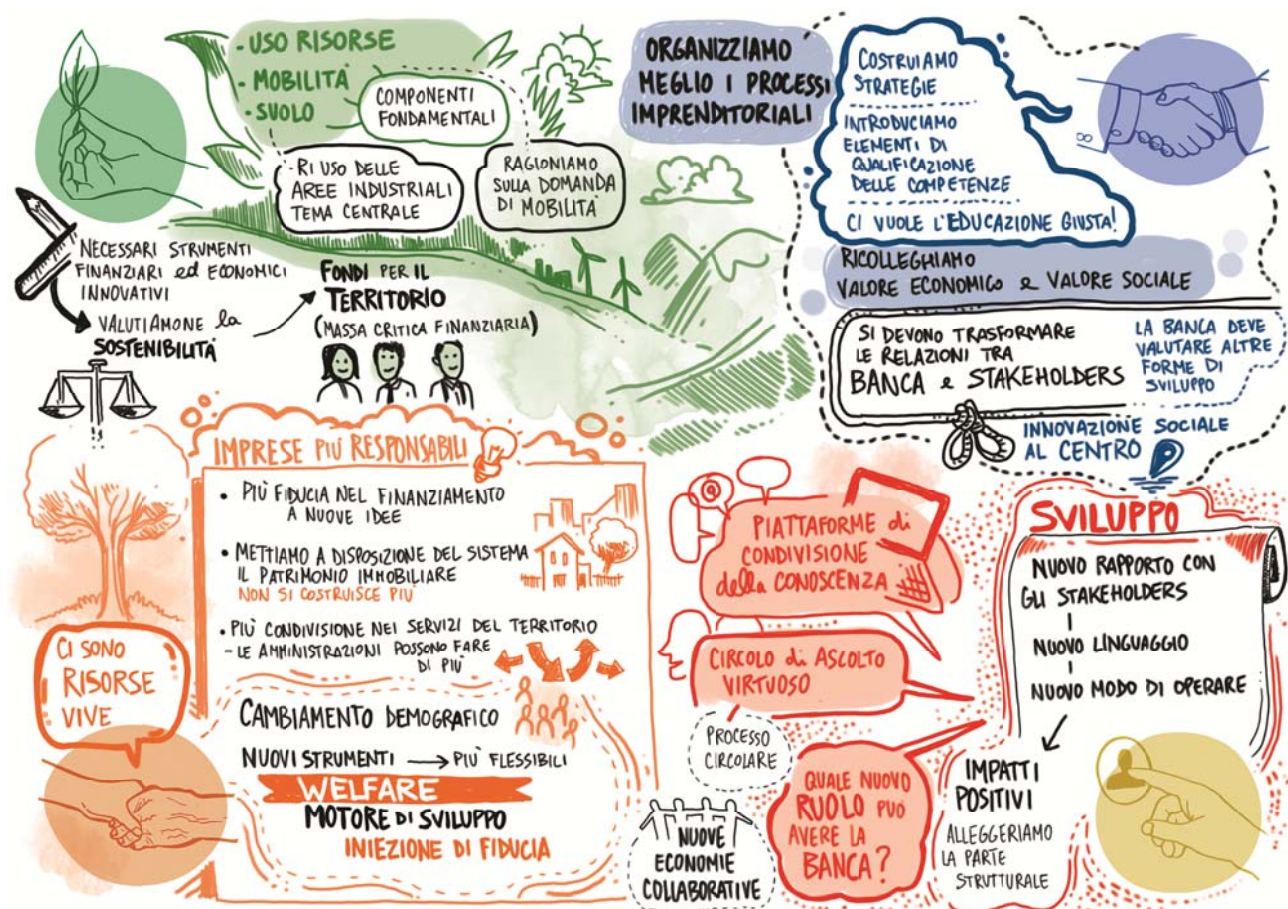 - USO RISORSE
- MOBILITÀ
- SUOLO
COMPONENTI
FONDAMENTALI
- RI USO DELLE
AREE INDUSTRIALI
TEMA CENTRALE
RAGIONIAMO
SULLA DOMANDA
DI MOBILITÀ
NECESSARI STRUMENTI
FINANZIARI ed ECONOMICI
INNOVATIVI
VALUTIAMONE la
SOSTENIBILITÀ
FONDI PER IL
TERRITORIO
(MASSA CRITICA FINANZIARIA)
ORGANIZZIAMO
MEGLIO I PROCESSI
IMPRENDITORIALI
COSTRUIAMO
STRATEGIE
INTRODUCIAMO
ELEMENTI DI
QUALIFICAZIONE
DELLE COMPETENZE
CI VUOLE L'EDUCAZIONE GIUSTA!
RICOLLEGHIAMO
VALORE ECONOMICO e VALORE SOCIALE
SI DEVONO TRASFORMARE
LE RELAZIONI TRA
BANCA e STAKEHOLDERS
LA BANCA DEVE
VALUTARE ALTRE
FORME DI
SVILUPPO
INNOVAZIONE SOCIALE
AL CENTRO
IMPRESE PIÙ RESPONSABILI
• PIÙ FIDUCIA NEL FINANZIAMENTO
A NUOVE IDEE
• METTIAMO A DISPOSIZIONE DEL SISTEMA
IL PATRIMONIO IMMOBILIARE
NON SI COSTRUISCE PIÙ
• PIÙ CONDIVISIONE NEI SERVIZI DEL TERRITORIO
- LE AMMINISTRAZIONI POSSONO FARE
DI PIÙ
CI SONO
RISORSE
VIVE
CAMBIAMENTO DEMOGRAFICO
NUOVI STRUMENTI → PIÙ FLESSIBILI
WELFARE
MOTORE DI SVILUPPO
INIEZIONE DI FIDUCIA
@
PIATTAFORME di
CONDIVISIONE
della CONOSCENZA
CIRCOLO di ASCOLTO
VIRTUOSO
PROCESSO
CIRCOLARE
NUOVE
ECONOMIE
COLLABORATIVE
QUALE NUOVO
RUOLO PUÒ
AVERE LA
BANCA?
SVILUPPO
NUOVO RAPPORTO CON
GLI STAKEHOLDERS
NUOVO LINGUAGGIO
NUOVO MODO DI OPERARE
IMPATTI
POSITIVI
ALLEGGERIAMO
LA PARTE
STRUTTURALE